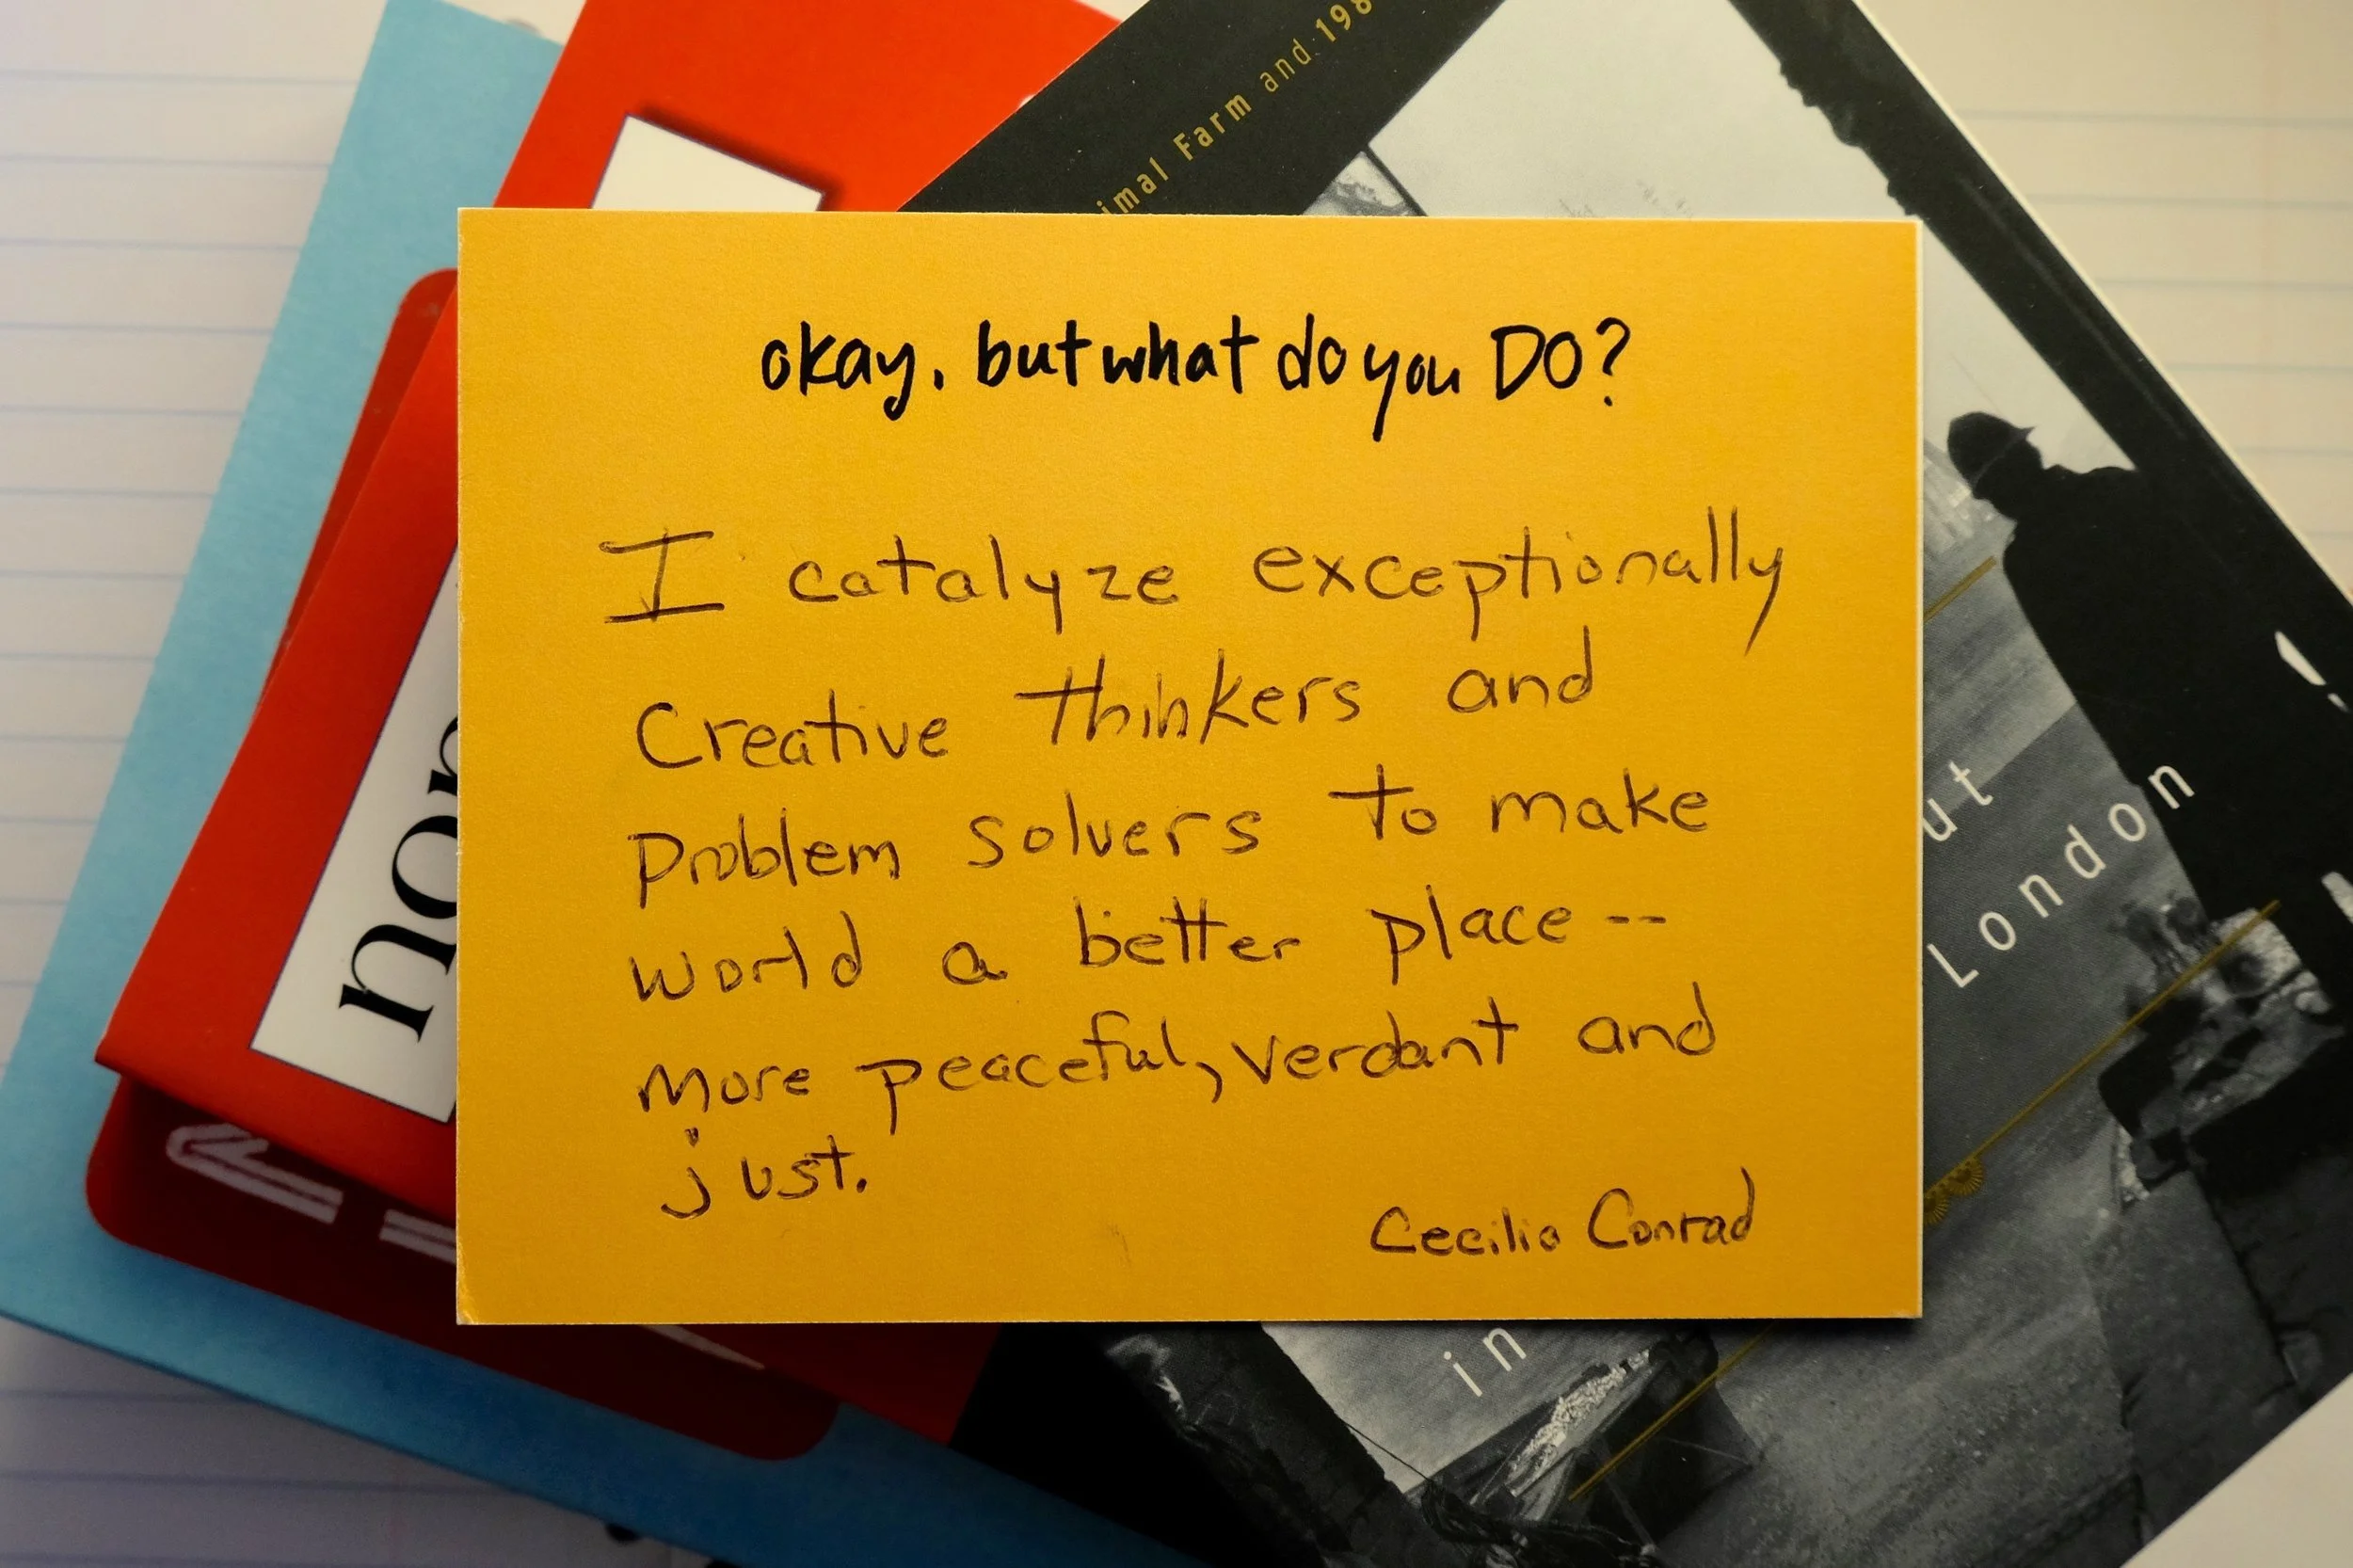 imal Farm and 198
okay, but what do you DO?
I catalyze exceptionally
Creative thinkers and
Problem solvers to make
world a better place --
More peaceful, verdant and
just.
Cecilia Conrad
non
ut
London
in